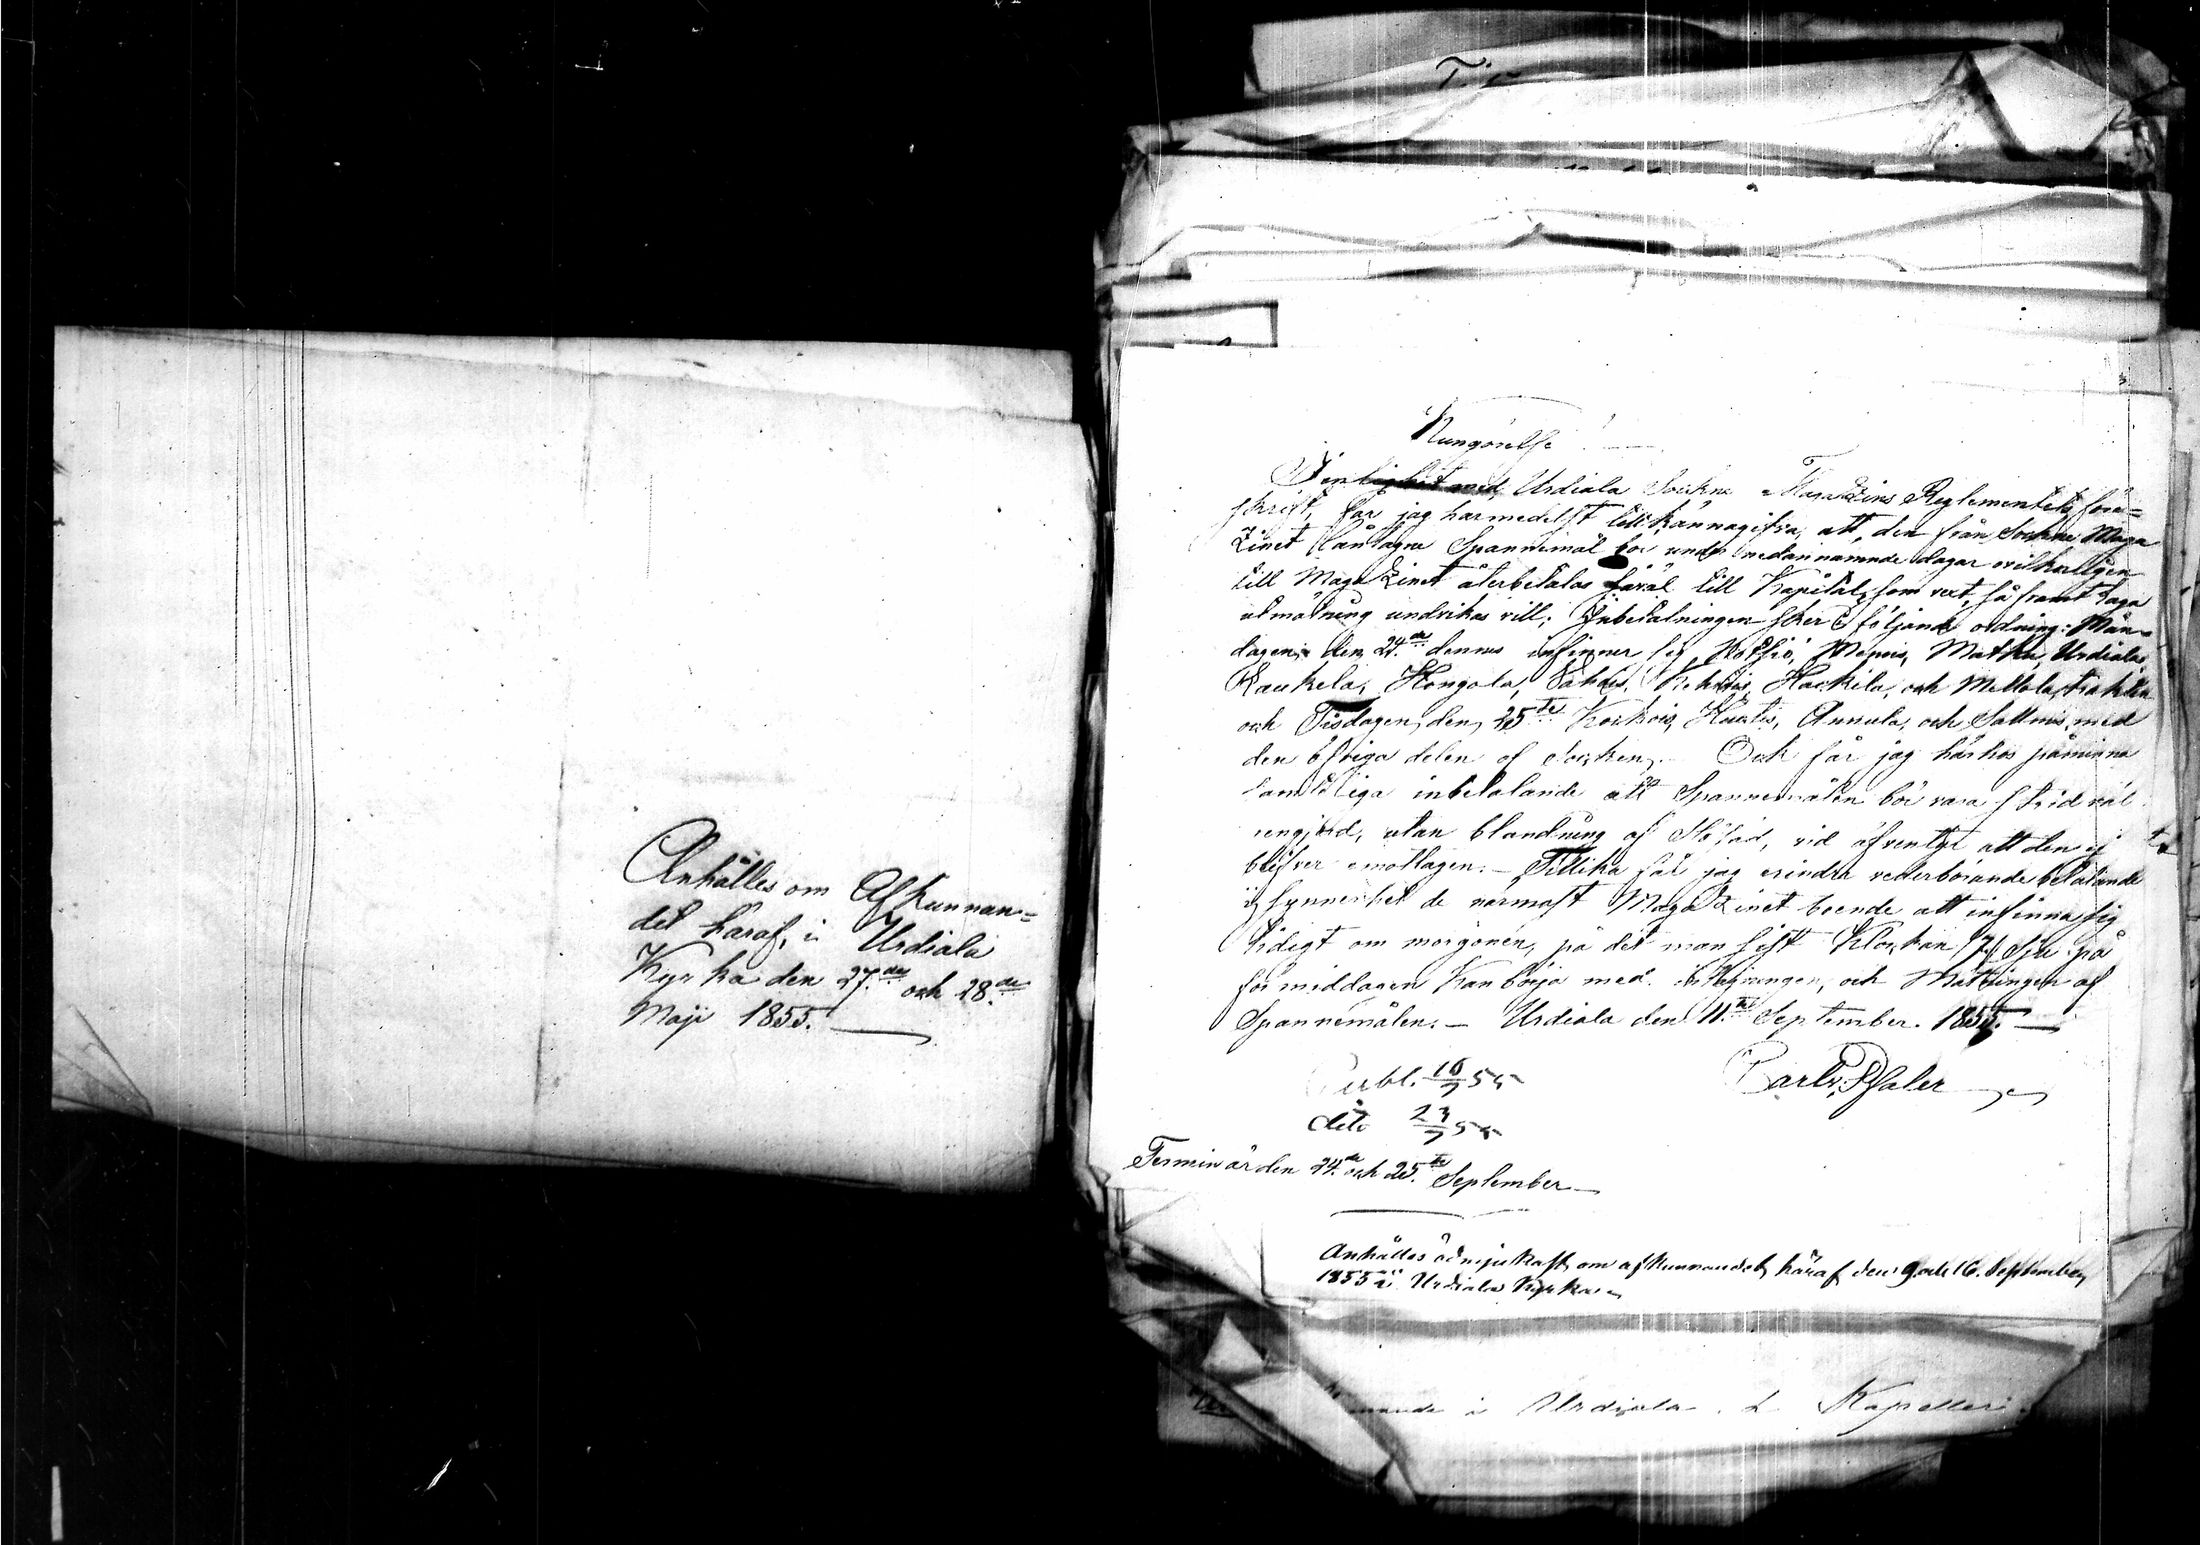 Anhålles om Afkunnan=
det häraf, i Urdiala
Kyrka den 27.de och 28.de
Maji 1855.
Kungörelse
I enlighet med Urdiala Sockne Magazins Reglementets före=
skrift, får jag härmedelst tillkännagifva, att, den från Sockne Maga
Zinet låntagne Spannemål bör under nedannämnde dagar ovilkorligen
till MagaZinet återbetalas såväl till Kapital, som rext, så framt Laga
utmätning undvikas vill; Inbetalningen sker i följande ordning: Mån=
dagen den 24.de dennes infinner sig Nuttjo, Menois, Matku, Urdiala,
Laukela, Hongola, Wahais, Kehrois, Hackila, och Mellola trakten
och Tisdagen, den, 25.te Koskois, Huutis, Annula, och Salmis, med
den öfriga delen af Socken. Och får jag härhos påminna
samteliga inbetalande att Spannemålen bör vara strid väl
rengjord, utan blandning af Slösäd, vid äfventyr att den ej
blifver emottagen. — Tillika får jag erindra vederbörande betalande
i synnerhet de närmast MagaZinet boende att infinna sig
tidigt om morgonen, på det man sist Klockan /7/ Sju på
förmiddagen Kan börja med inkäfningen, och Mätningen af
Spannemålen. — Urdiala den 11.te September. 1855. —
Publ. 16/9 55 Carl Dahler
dito 23/9 55
Termin är den 24.de och 25.te September —
Anhålles ödmjukast, om afkunnandet, häraf den 9 och 16. September
1855 i Urdiala Kyrka.
i Urdiala Kapeller